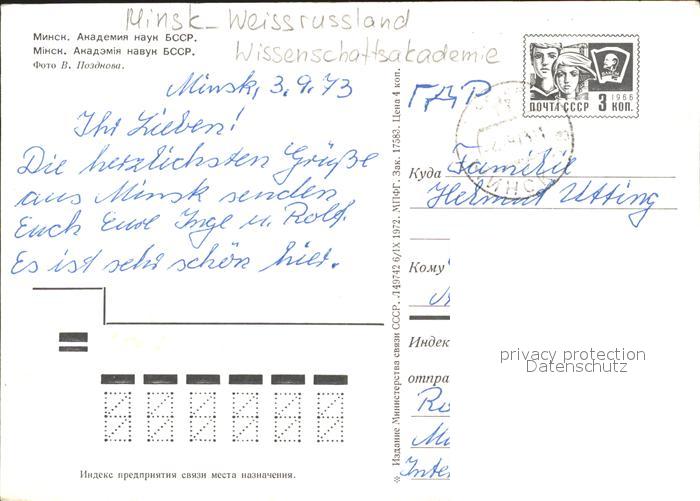 Minsk - Weissrussland
Wissenschaftsakademie
Минск. Академия наук БССР.
Мінск. Акадэмія навук БССР.
Фото В. Позднова.
Minsk, 3.9.73
Ihr Lieben!
Die herzlichsten Grüße
aus Minsk senden
Euch Eure Inge u. Rolf.
Es ist sehr schön hier.
Индекс предприятия связи места назначения.
※ Издание Министерства связи СССР. .149742 6/IX 1972. МПФГ. Зак. 17583. Цена 4 коп.
ГДР
ПОЧТА СССР 3 1966 КОП.
Куда Familie
Helmut Utting
Кому
Индек
отпра
Ro
Mi
Inte
privacy protection
Datenschutz